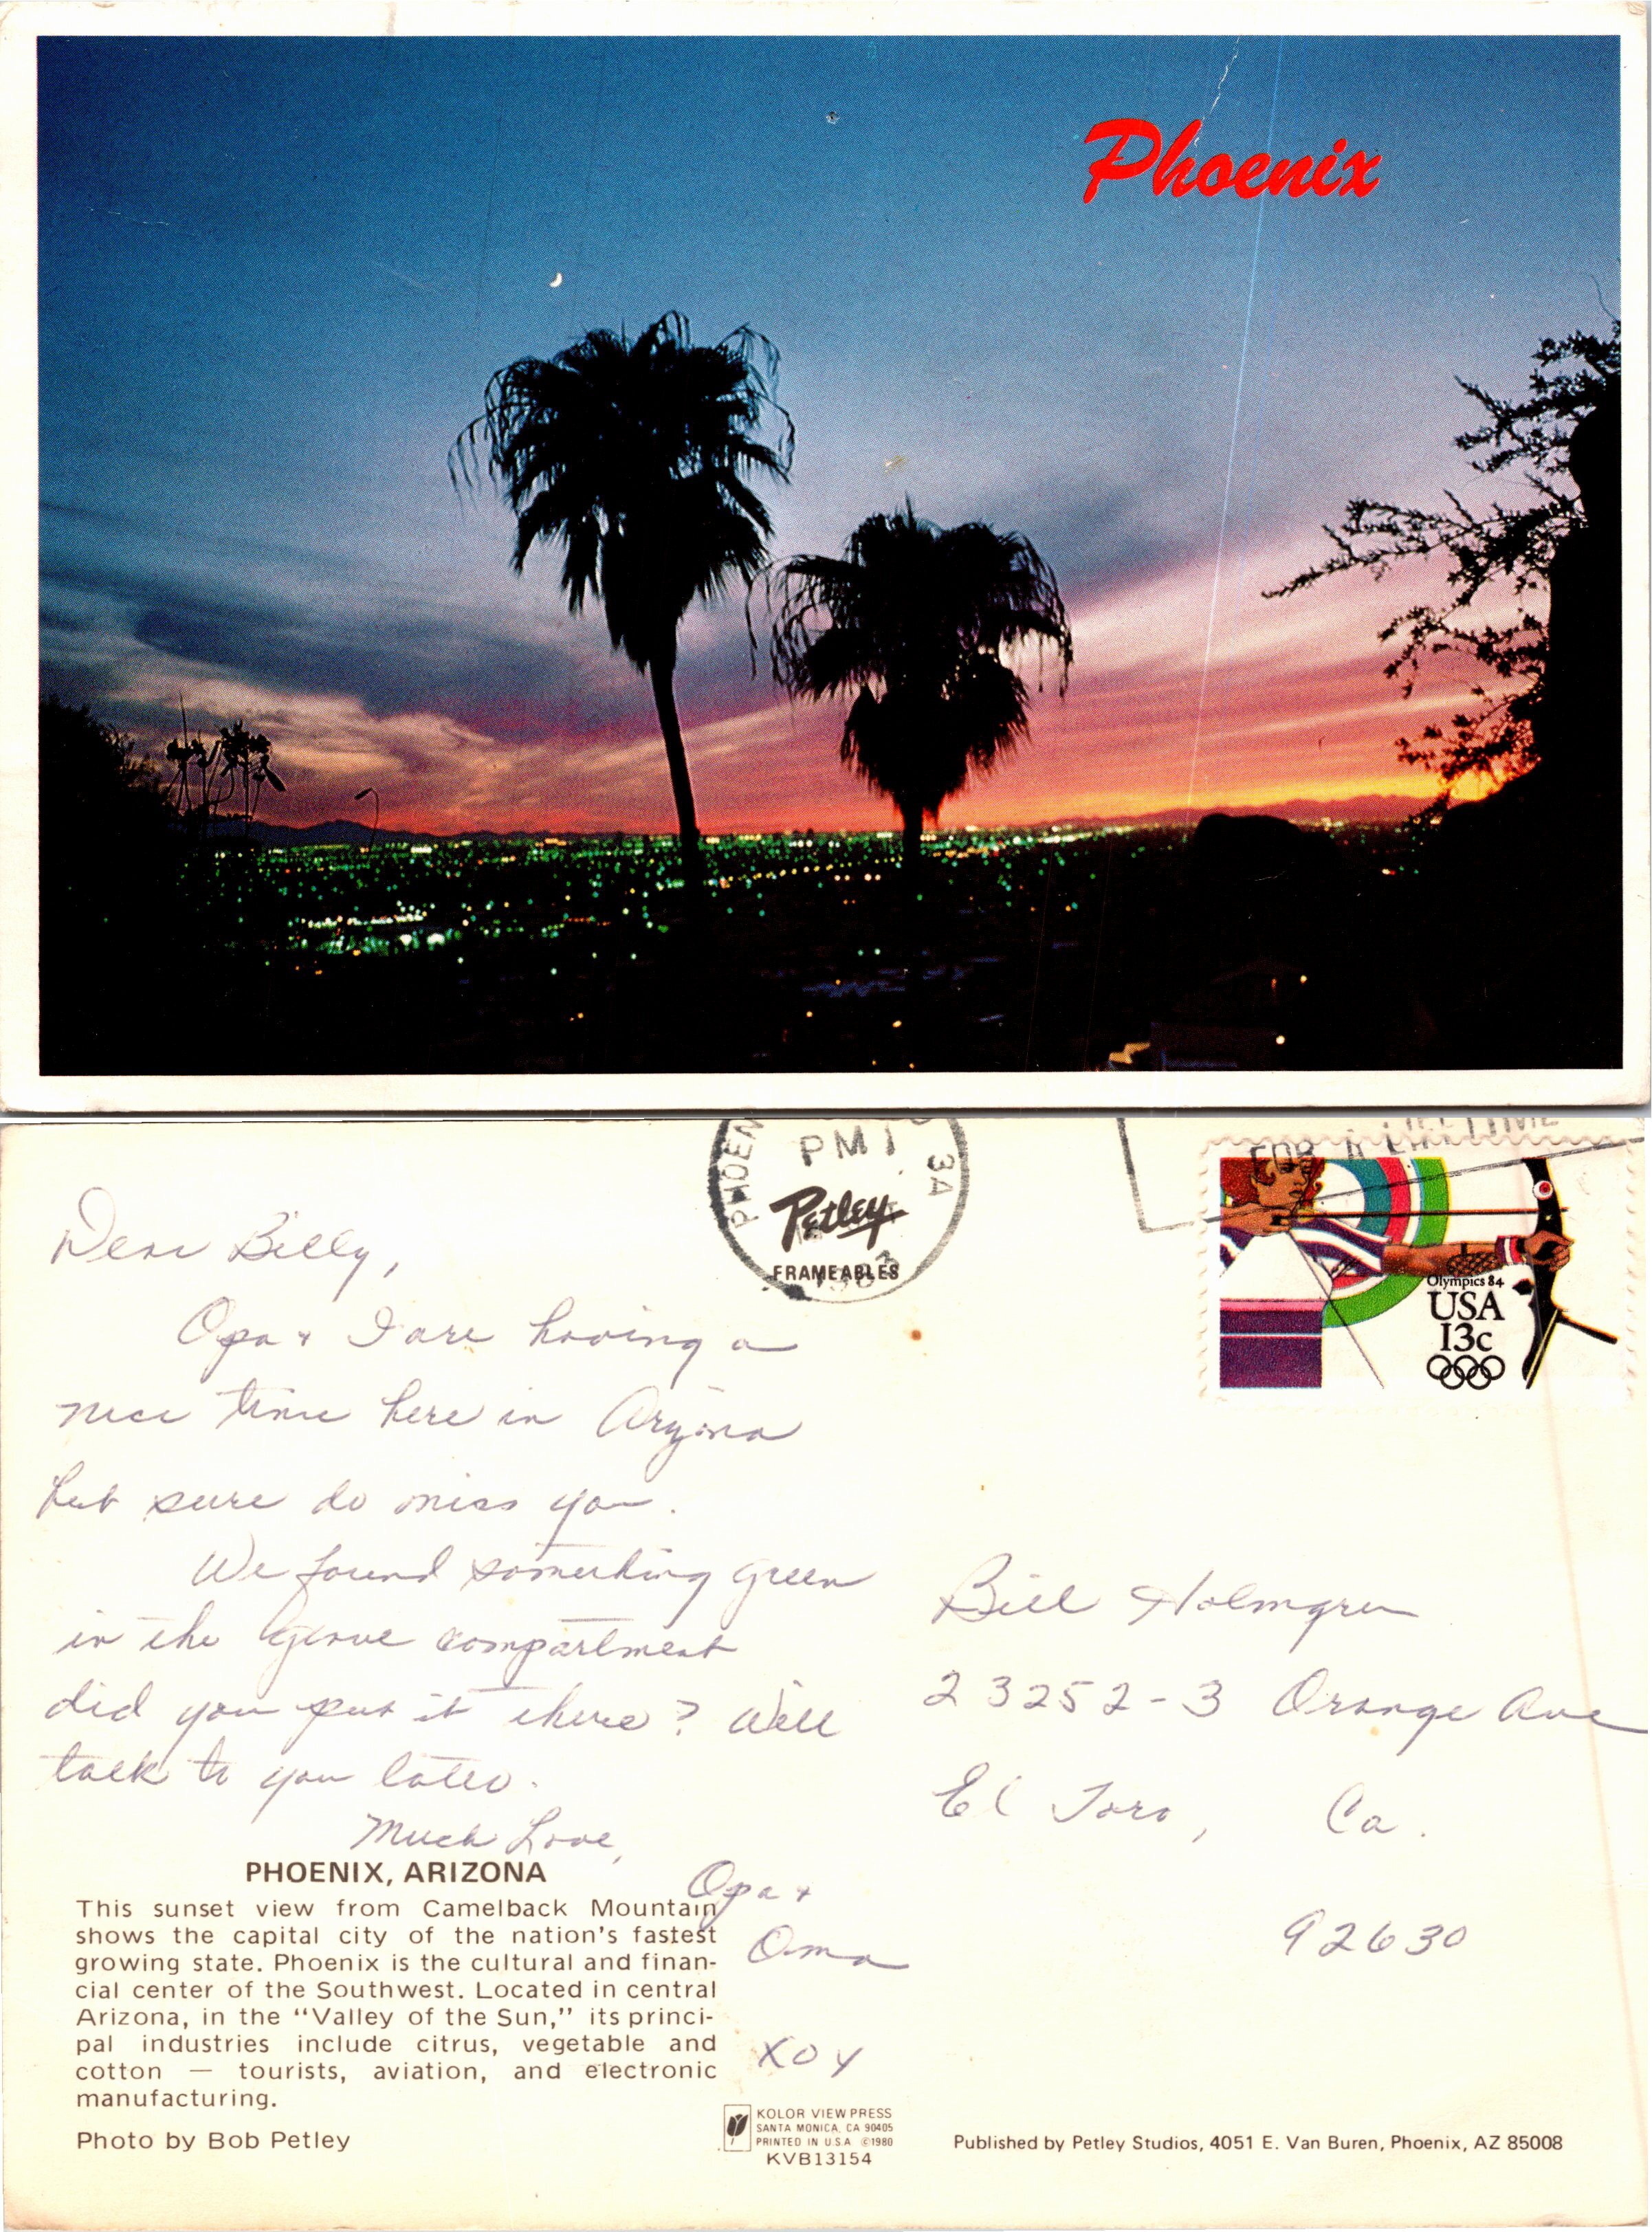 Phoenix
PHOEN
PM 1
3A
198
Petley
FRAMEABLES
FOR A LIFETIME
Olympics 84
USA
13c
Dear Billy,
Opa + I are having a
nice time here in Aryzona
but sure do miss you.
We found something green
in the glove compartment
did you put it there? Well
talk to you later.
Much Love,
Opa +
Oma
XOX
Bill Holmgren
23252-3 Orange Ave
El Toro, Ca.
92630
PHOENIX, ARIZONA
This sunset view from Camelback Mountain
shows the capital city of the nation's fastest
growing state. Phoenix is the cultural and finan-
cial center of the Southwest. Located in central
Arizona, in the "Valley of the Sun," its princi-
pal industries include citrus, vegetable and
cotton — tourists, aviation, and electronic
manufacturing.
Photo by Bob Petley
KOLOR VIEW PRESS
SANTA MONICA, CA 90405
PRINTED IN U.S.A. ©1980
KVB13154
Published by Petley Studios, 4051 E. Van Buren, Phoenix, AZ 85008